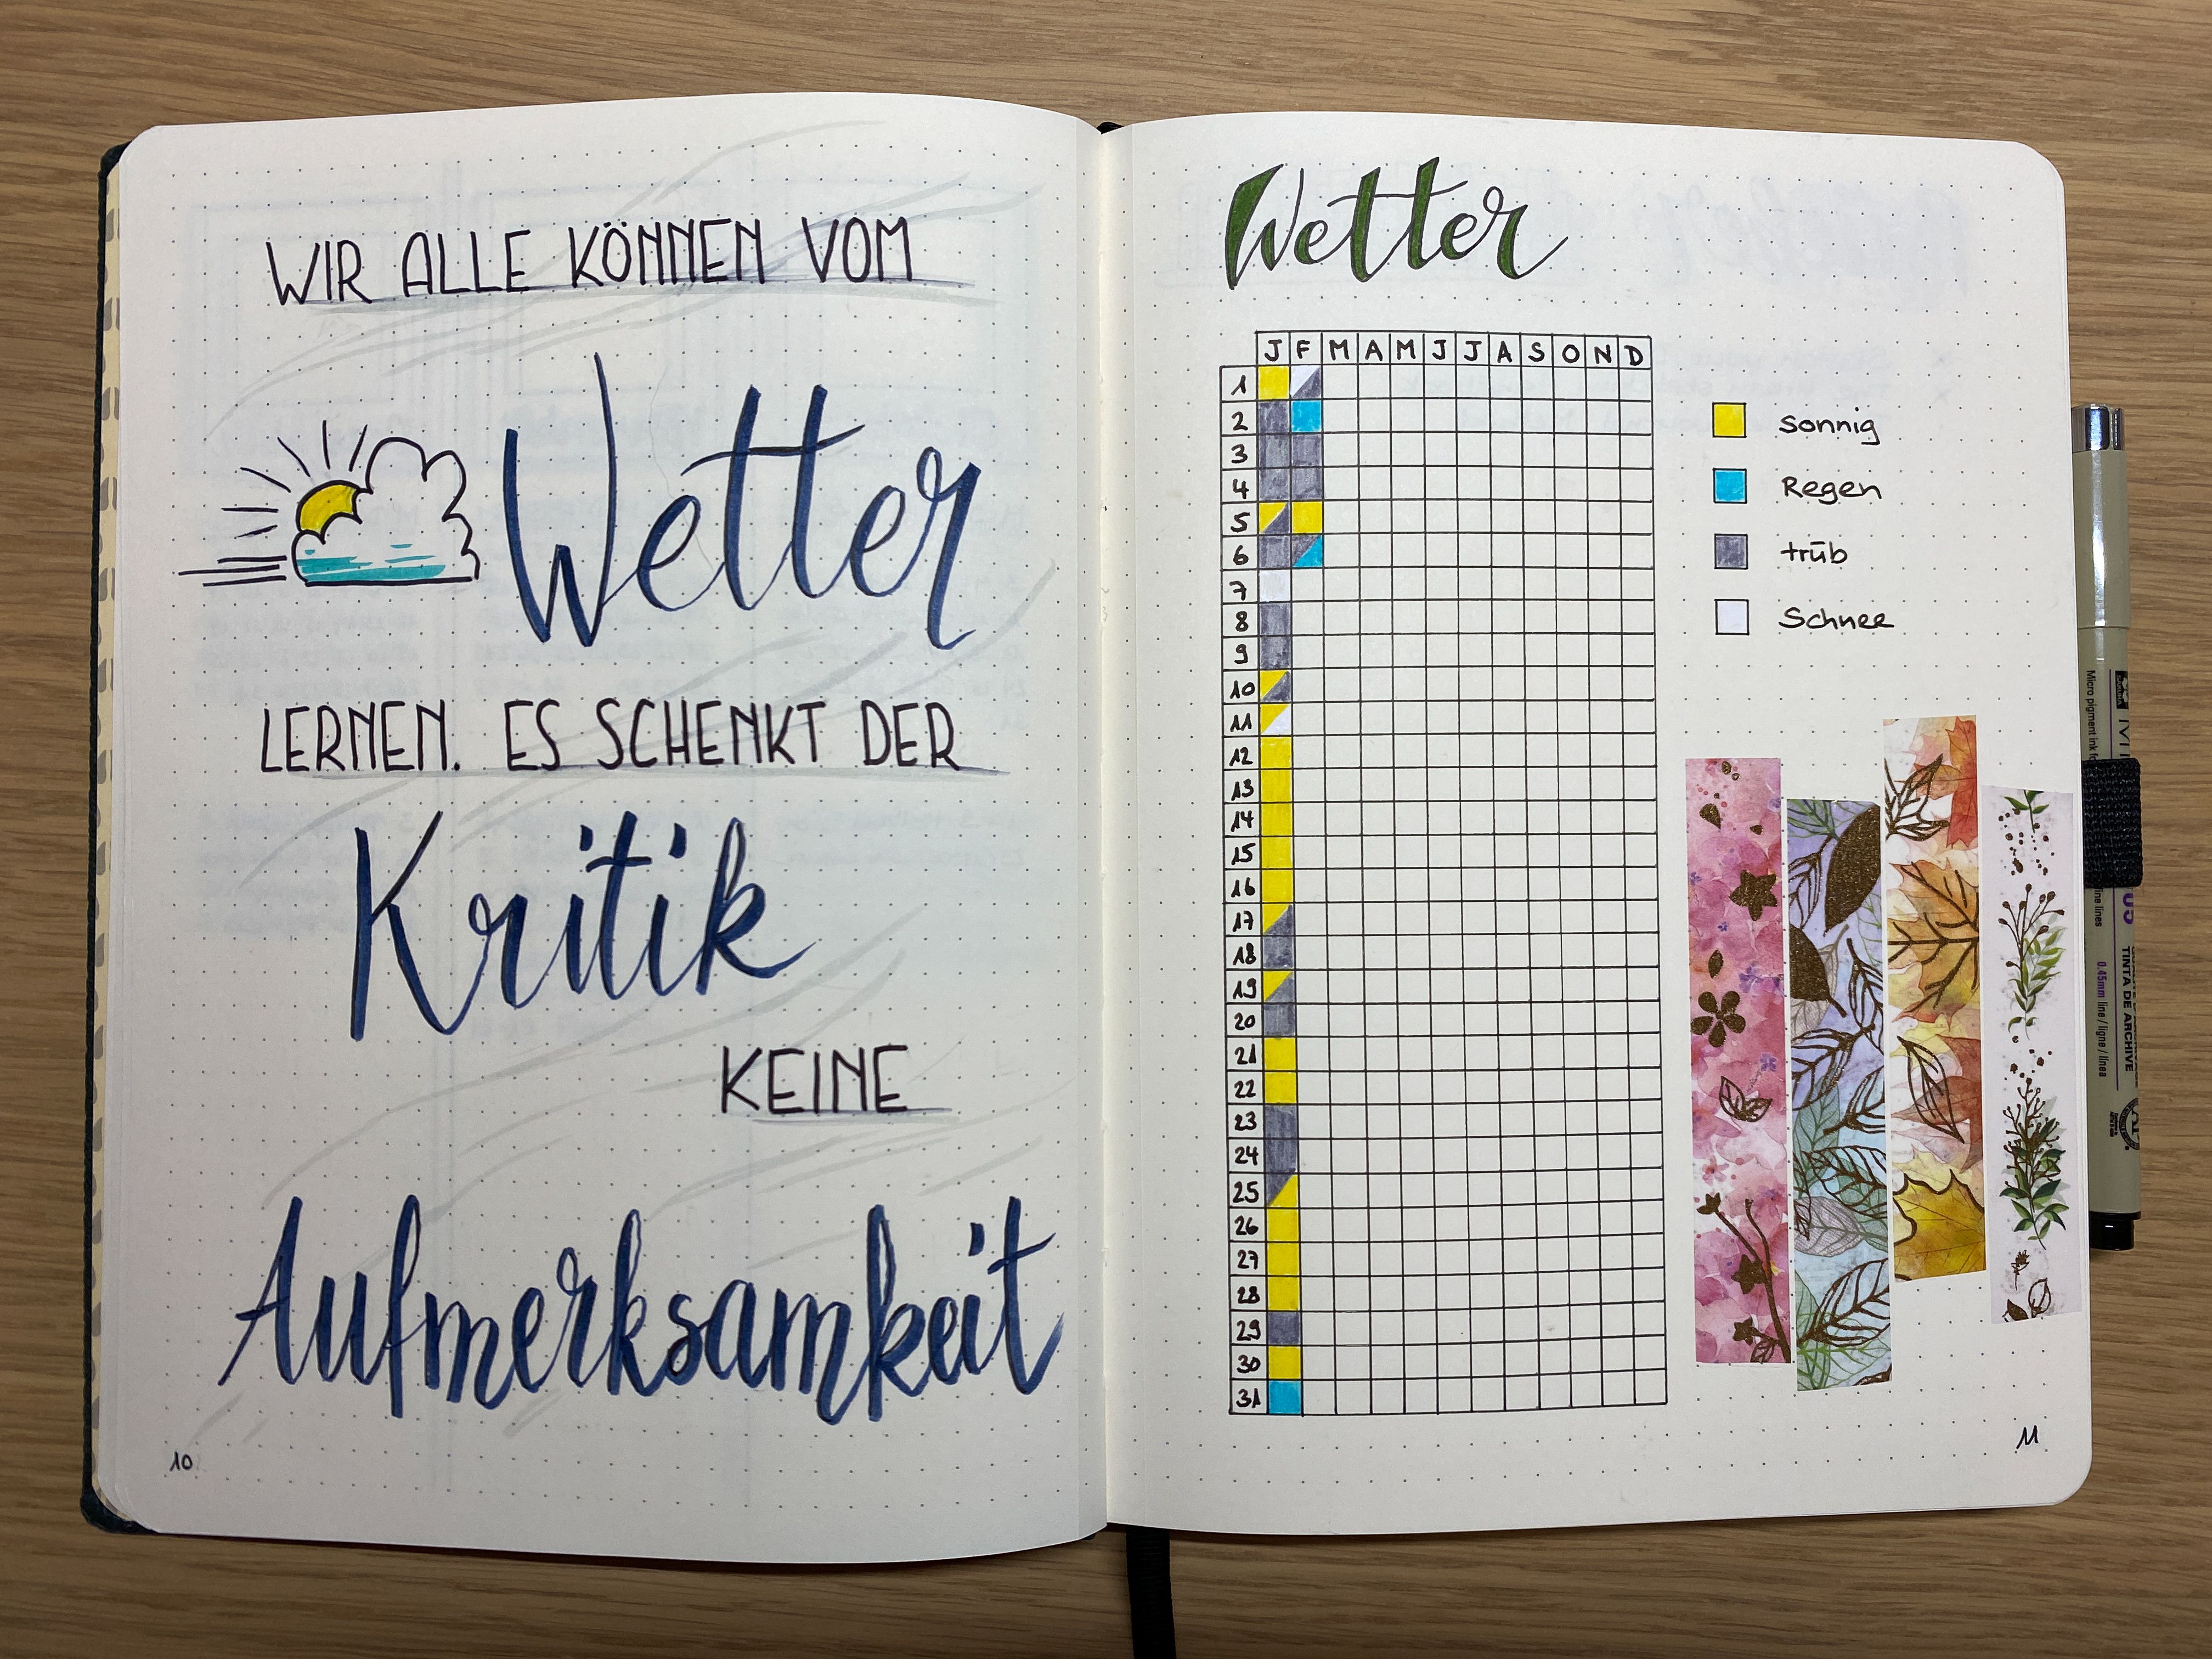 WIR ALLE KÖNNEN VOM
Wetter
LERNEN. ES SCHENKT DER
Kritik
KEINE
Aufmerksamkeit
10
Wetter
J F M A M J J A S O N D
1
2
3
4
5
6
7
8
9
10
11
12
13
14
15
16
17
18
19
20
21
22
23
24
25
26
27
28
29
30
31
sonnig
Regen
trüb
Schnee
11
Micro pigment ink
fine lines
05
TINTA DE ARCHIVE
0.45mm line / ligne / línea